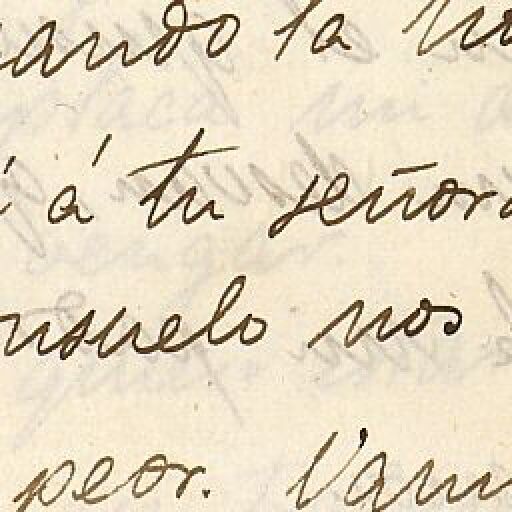 ando la no
á tu señora
nsuelo nos
peor. Vam